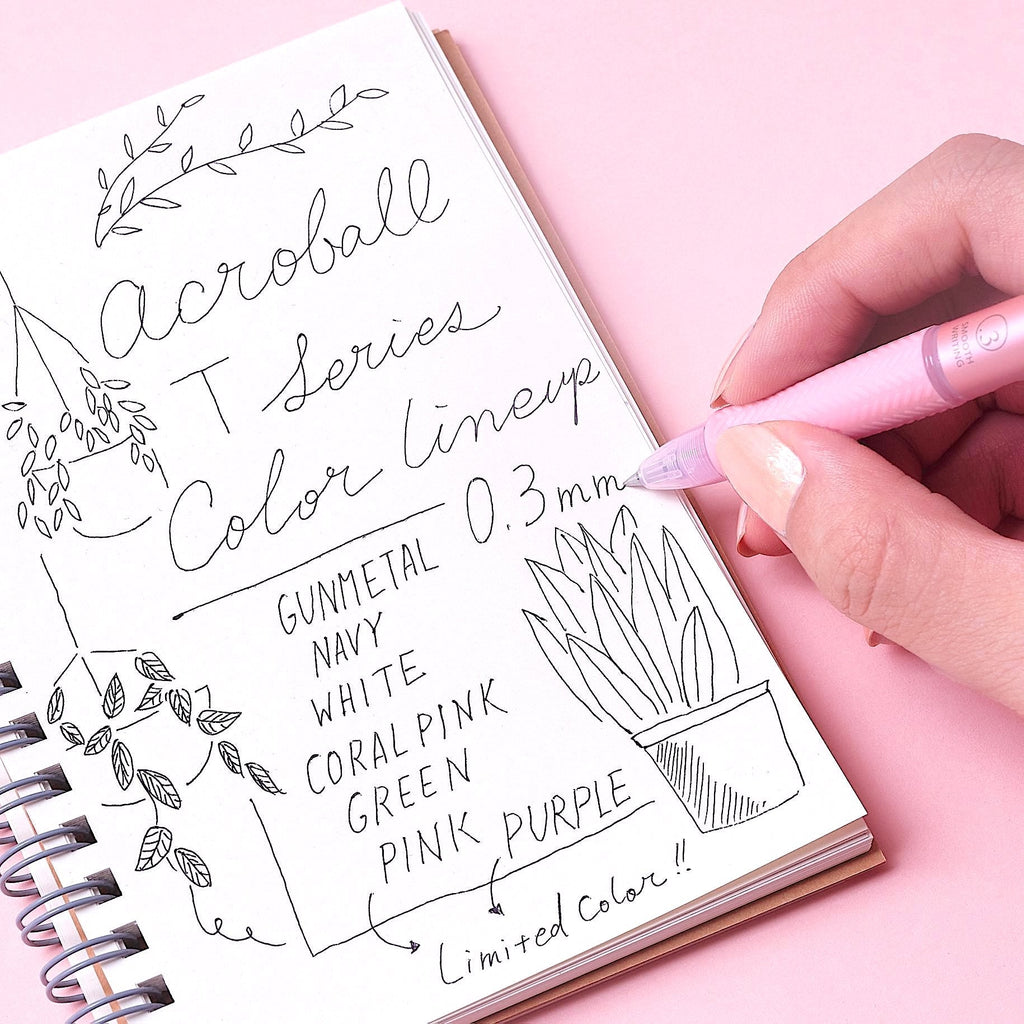 Acroball
T Series
Color lineup
0.3mm
GUNMETAL
NAVY
WHITE
CORAL PINK
GREEN
PINK PURPLE
Limited Color!!
0.3
SMOOTH
WRITING